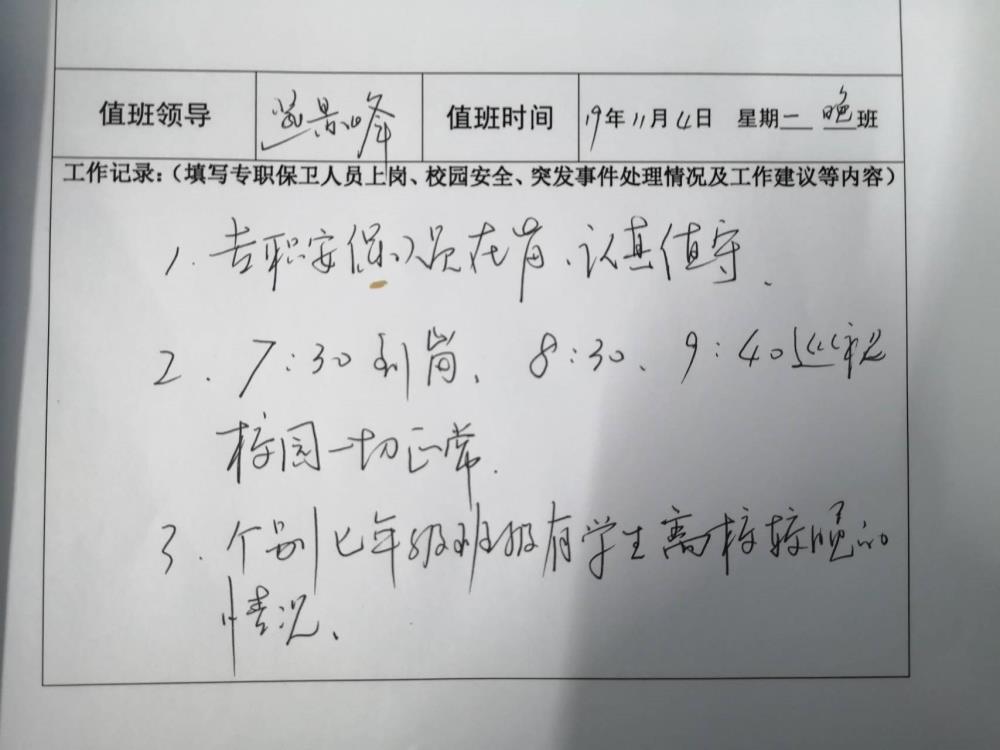 值班领导 景峰 值班时间 19年11月4日 星期一 晚班
工作记录：（填写专职保卫人员上岗、校园安全、突发事件处理情况及工作建议等内容）
1. 专职安保人员在岗、认真值守.
2. 7:30到岗、8:30、9:40巡视
校园一切正常.
3. 个别七年级班级有学生离校较晚的
情况、